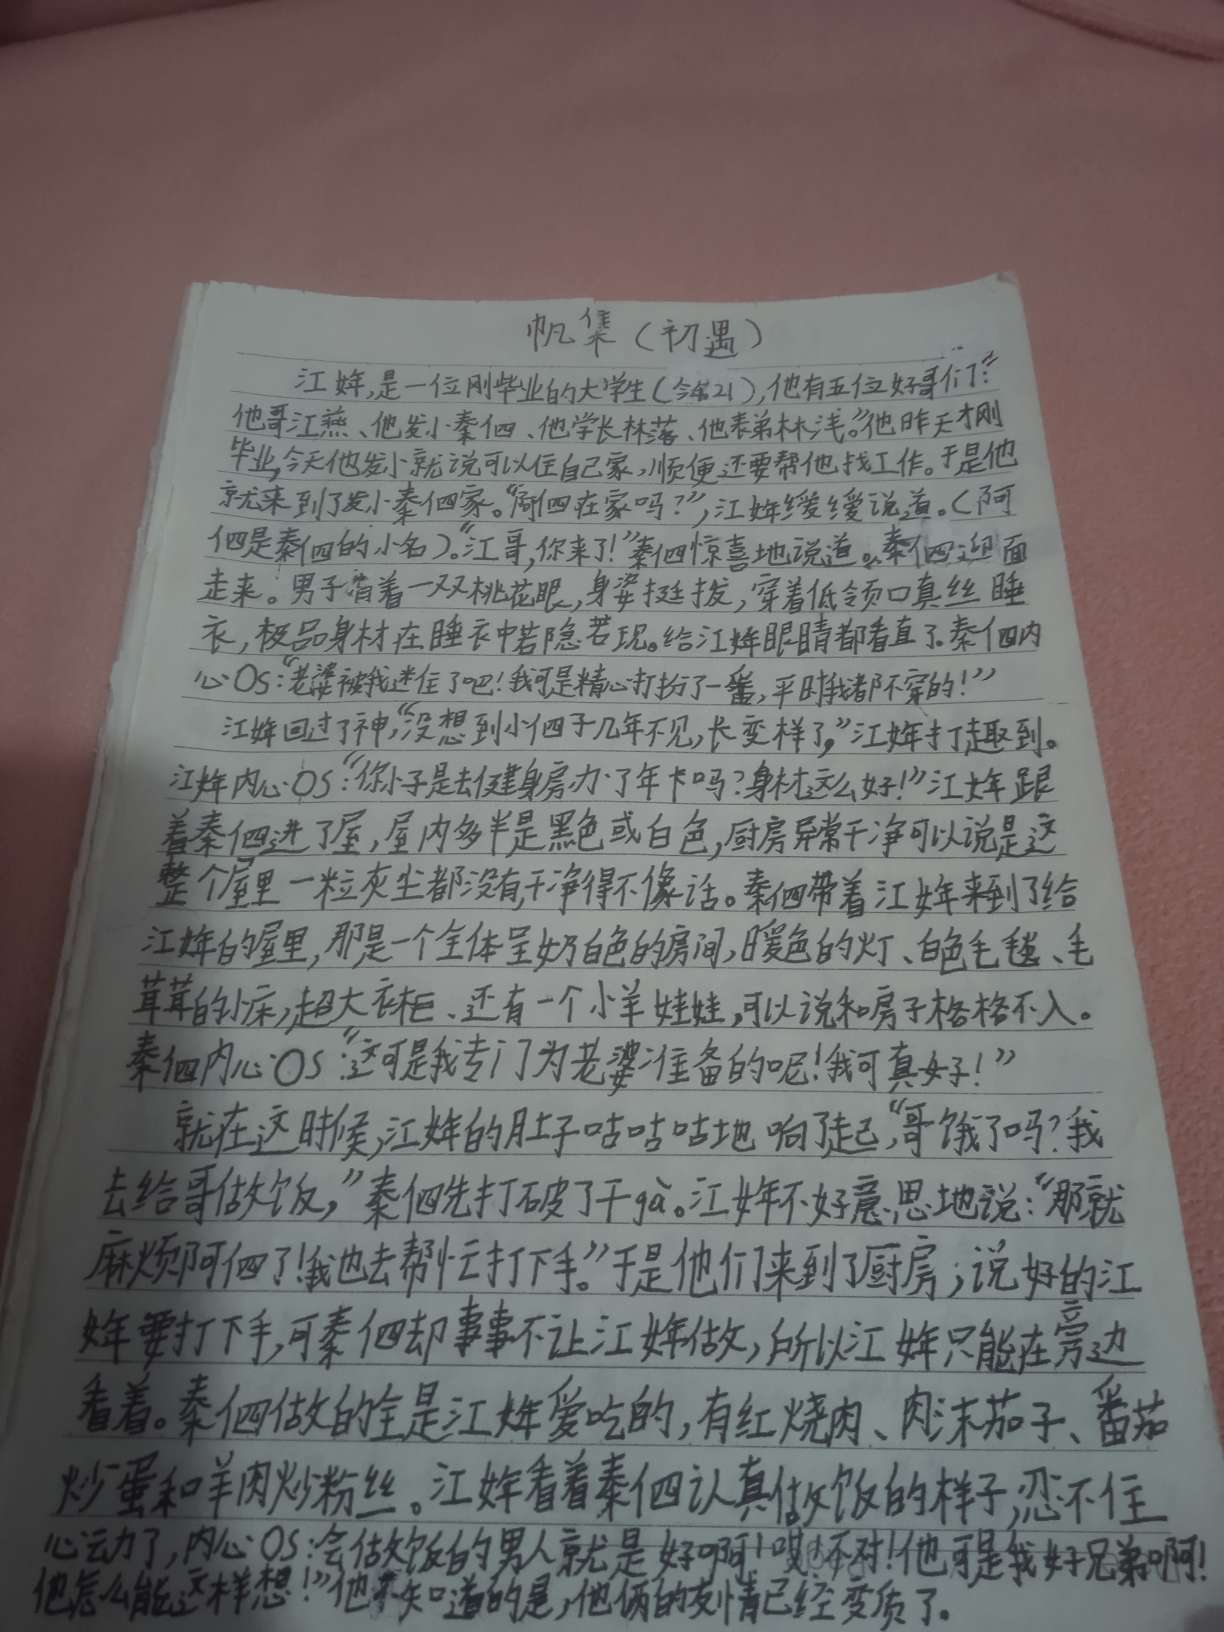 帆集（初遇）
江姩，是一位刚毕业的大学生（今年21），他有五位好哥们："
他哥江燕、他发小秦伵、他学长林落、他表弟林浅。"他昨天才刚
毕业，今天他发小就说可以住自己家，顺便还要帮他找工作。于是他
就来到了发小秦伵家。"阿伵在家吗？"，江姩缓缓说道。（阿
伵是秦伵的小名）。"江哥，你来了！"秦伵惊喜地说道。秦伵迎面
走来。男子有着一双桃花眼，身姿挺拔，穿着低领口真丝睡
衣，极品身材在睡衣中若隐若现。给江姩眼睛都看直了。秦伵内
心OS："老婆被我迷住了吧！我可是精心打扮了一番，平时我都不穿的！"
江姩回过了神，"没想到小伵子几年不见，长变样了，"江姩打趣到。
江姩内心OS："你小子是去健身房办了年卡吗？身材这么好！"江姩跟
着秦伵进了屋，屋内多半是黑色或白色，厨房异常干净可以说是这
整个屋里一粒灰尘都没有，干净得不像话。秦伵带着江姩来到了给
江姩的屋里，那是一个全体呈奶白色的房间，暖色的灯、白色毛毯、毛
茸茸的小床，超大衣柜、还有一个小羊娃娃，可以说和房子格格不入。
秦伵内心OS："这可是我专门为老婆准备的呢！我可真好！"
就在这时候，江姩的肚子咕咕咕地响了起，"哥饿了吗？我
去给哥做饭，"秦伵先打破了干gà。江姩不好意思地说："那就
麻烦阿伵了！我也去帮忙打下手。"于是他们来到了厨房，说好的江
姩要打下手，可秦伵却事事不让江姩做，所以江姩只能在旁边
看着。秦伵做的全是江姩爱吃的，有红烧肉、肉沫茄子、番茄
炒蛋和羊肉炒粉丝。江姩看着秦伵认真做饭的样子，忍不住
心动了，内心OS：会做饭的男人就是好啊！哎！不对！他可是我好兄弟啊！
他怎么能这样想！"他不知道的是，他俩的友情已经变质了。